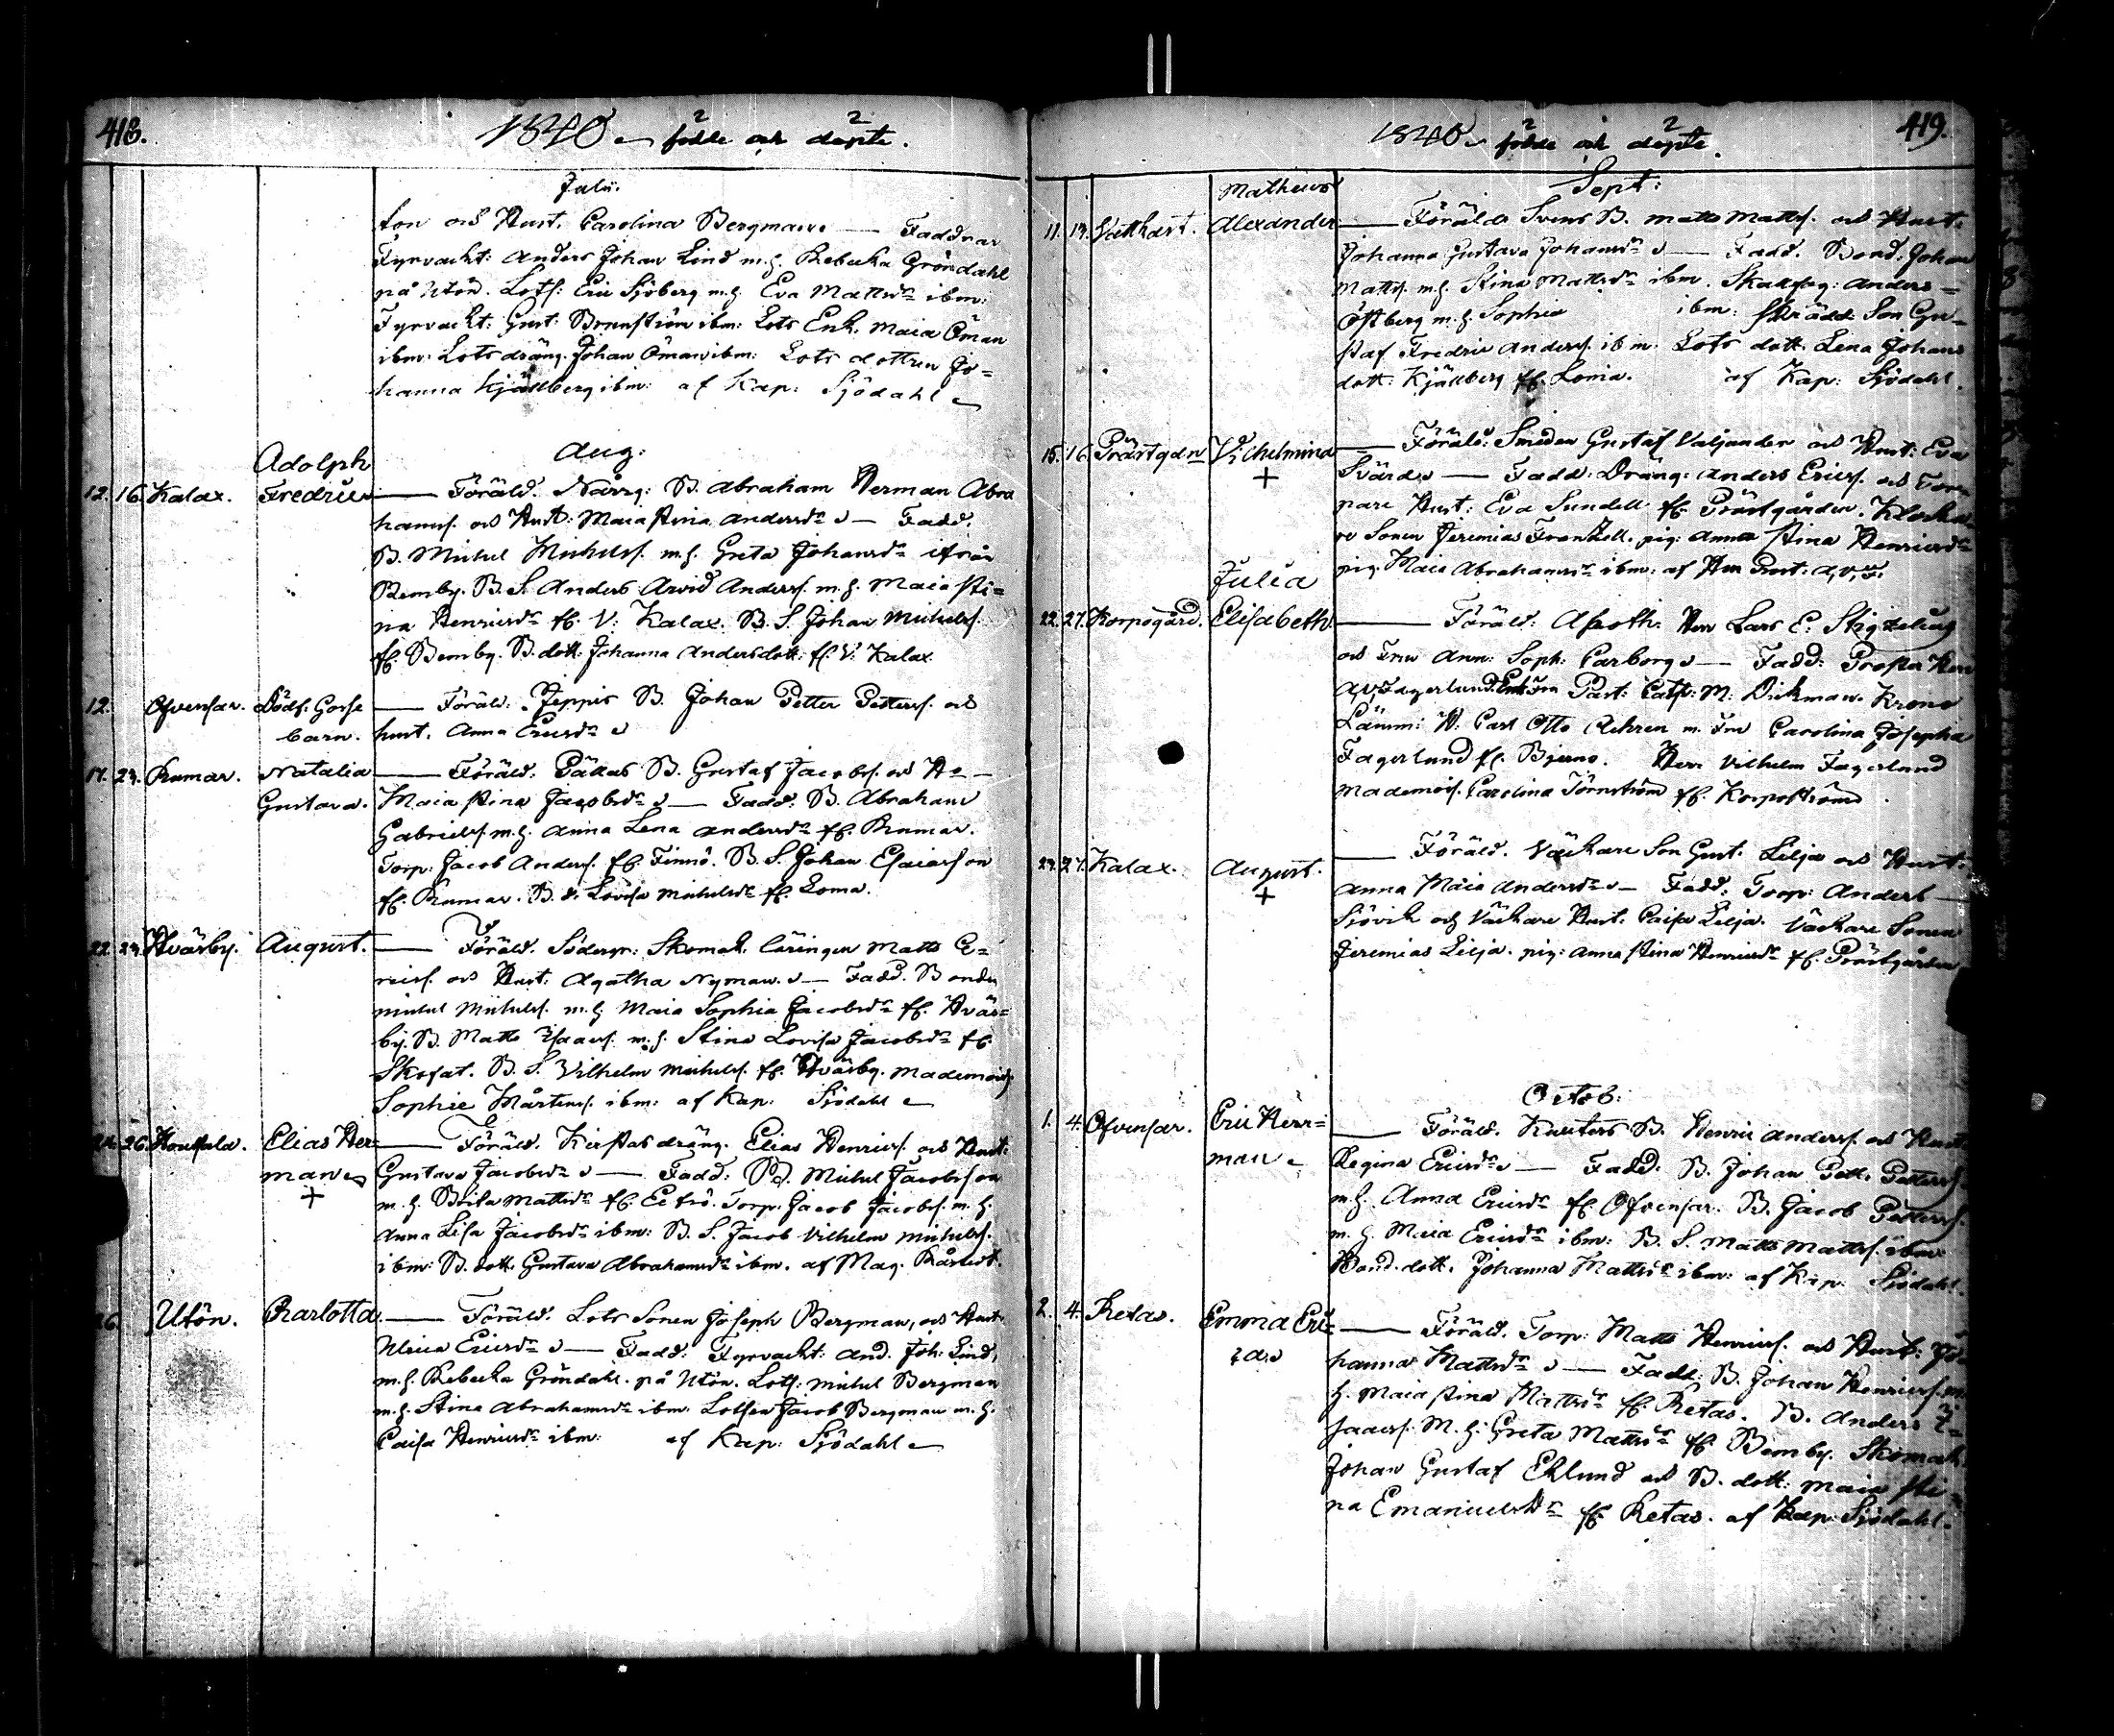 418.
1840 födde och döpte.
Julii.
ton och Hust. Carolina Bergman — Faddrar
Fyrvackt: Anders Johan Lind m.h. Rebecka Gröndahl
på Utön. Lots: Eric Sjöberg m.h. Eva Mattsdr ibm:
Fyrvackt: Gust: Brunström ibm: Lots Enk. Maia Öman
ibm: Lots dräng. Johan Öman ibm: Lots dottren Jo=
hanna Kjällberg ibm: af Kap: Sjödahl
Aug:
Adolph
12. 16. Kalax. Fredric — Föräld. B. Abraham Herman Abra
hamss. och Hust: Maia Stina Andersdr — Fadd.
B. Michel Michelss. m.h. Greta Johansdr ifrån
Bemby. B. S. Anders Arvid Anderss. m.h. Maia Sti=
na Henricsdr fr. V. Kalax. B. S. Johan Michelss.
fr. Bemby. B. dott: Johanna Andersdott: fr. V. Kalax
12. Ofvensar. Dödf. Gosse — Föräld. Jeppis B. Johan Petter Petterss. och
barn. hust. Anna Ericsdr
17. 23. Rumar. Natalia — Föräld. Pällas B. Gustaf Jacobss. och H
Gustava. Maia Stina Jacobsdr — Fadd. B. Abraham
Gabrielss. m.h. Anna Lena Andersdr fr. Rumar.
Torp: Jacob Anderss. fr. Finnö. B. S. Johan Esaiasson
fr. Rumar. B. d. Lovisa Michelsdr fr. Loma.
22. 23. Hväsby. August. — Föräld. Skomak. läringen Matts E=
ricss. och Hust: Agatha Nyman. — Fadd. Bonden
Michel Michelss. m.h. Maia Sophia Jacobsdr fr. Hväs=
by. B. Matts Isaacss. m.h. Stina Lovisa Jacobsdr fr.
B. S. Vilhelm Michelss. fr. Hväsby. Mademois.
Sophie Mårtens. ibm: af Kap: Sjödahl
26. Elias Her= — Föräld. dräng. Elias Henricss. och Hust:
man Gustava Jacobsdr — Fadd: B. Michel Jacobsson
+ m.h. Brita Mattsdr Torp: Jacob Jacobss. m.h.
Anna Lisa Jacobsdr ibm: B. S. Jacob Vilhelm Michelss.
ibm: B. dott. Gustava Abrahamsdr ibm. af Mag.
26. Utön. Charlotta. — Föräld. Lots Sonen Joseph Bergman, och Hust:
Ulrica Ericsdr — Fadd: Fyrvackt: And. Joh: Lind,
m.h. Rebecka Gröndahl. på Utön. Lots: Michel Bergman
m.h. Stina Abrahamsdr ibm: Lotsen Jacob Bergman m.h.
Caisa Henricsdr ibm: af Kap: Sjödahl
419.
1840 födde och döpte.
Sept:
Matheus
11. 13. Alexander — Föräld. B. Matts Mattss. och Hust:
Johanna Gustava Johansdr — Fadd. Bond. Johan
Mattss. m.h. Stina Mattsdr ibm. Anders
Östberg m.h. Sophia ibm: Skrädd: Son Gu=
staf Fredric Anderss. ibm. Lots dott. Lena Johans
dott: Kjällberg fr. Loma. af Kap: Sjödahl.
15. 16. Prästgdn Vilhelmina — Föräld: Smeden Gustaf Valjander och Hust: Eva
+ Svärd — Fadd: Dräng: Anders Ericss. och Tor=
pare Hust: Eva Sundell fr. Prästgården. Klocka=
re Sonen Jeremias Frantzell. pig: Anna Stina Henricsdr
pig. Maia Abrahamsdr ibm: af Herr Prost: A,V, F.
Julia
22. 27. Korpogård. Elisabeth — Föräld: Apoth. Herr Lars E. Stigzelius
och Fru Ann: Soph: Carborg — Fadd: Prosten Herr
A,V, Fagerlund. Enk Fru Past: Cath: M: Dickman. Krono
Länm: H. Carl Otto Rehren m. Fru Carolina Josepha
Fagerlund fr. Bjerno. Herr Vilhelm Fagerlund
Mademois. Carolina Törnström fr. Korpoström.
23. 27. Kalax. August. — Föräld. Väckare Son Gust. Lilja och Hust:
+ Anna Maia Andersdr — Fadd: Torp: Anders
Sjövik och Väckare Hust. Caisa Lilja. Väckare Sonen
Jeremias Lilja. pig: Anna Stina Henricsdr fr. Prästgården
Octob:
1. 4. Ofvensar. Eric Herr= — Föräld. Knuters B. Henric Anderss. och Hust
man Regina Ericsdr — Fadd: B. Johan Pett. Petterss.
m.h. Anna Ericsdr fr. Ofvensar. B. Jacob Petterss.
m.h. Maia Ericsdr ibm: B. S. Matts Mattss. ibm
Bond. dott. Johanna Mattsdr ibm: af Kap: Sjödahl.
2. 4. Retas. Emma Eri= — Föräld. Torp: Matts Henricss. och Hust: Jo=
ca hanna Mattsdr — Fadd: B. Johan Henricss. m.
h. Maia Stina Mattsdr fr. Retas. B. Anders I=
saacss. m.h. Greta Mattsdr fr. Bemby. Skomak.
Johan Gustaf Eklund och B. dott: Maia Sti
na Emanuelsdr fr. Retas. af Kap: Sjödahl.